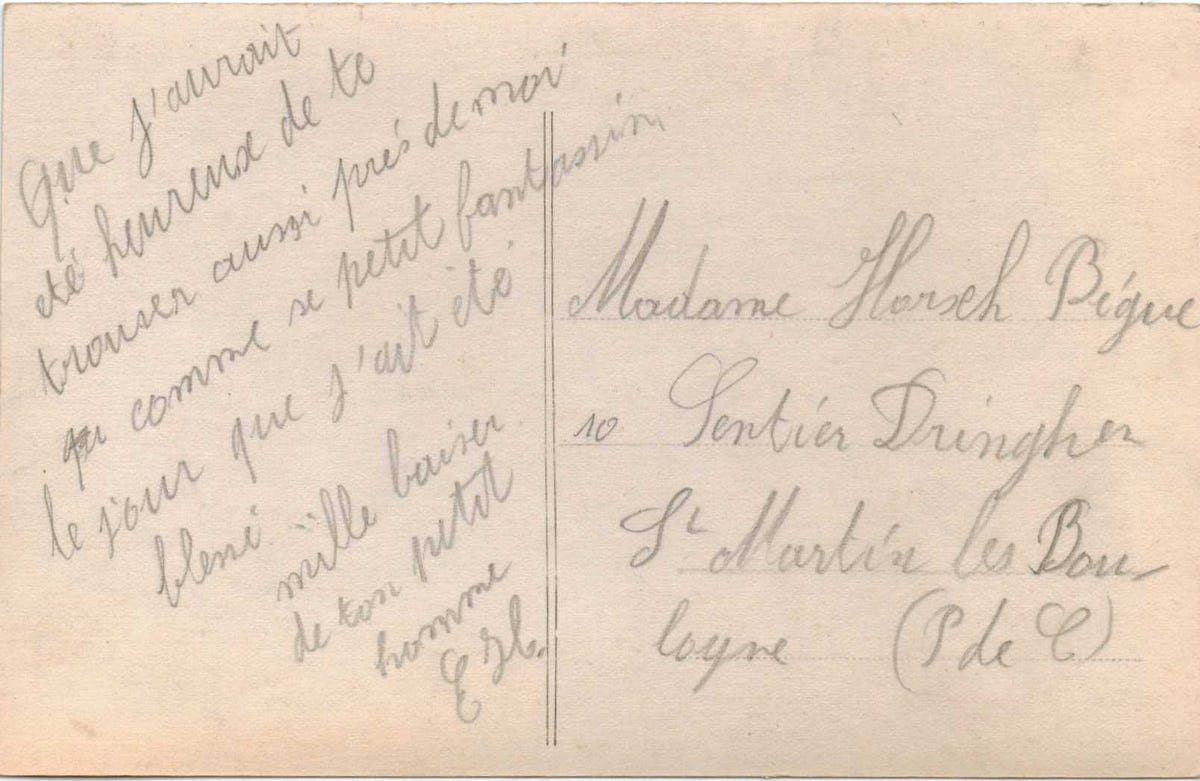 Que j'aurait
été heureux de te
trouver aussi près de moi
comme se petit fantassin
le jour que j'ait été
blessé mille baiser
de ton petit
homme
E H.
Madame Horsch Bégue
10 Sentier Dringhen
St Martin les Bou-
logne (P de C)